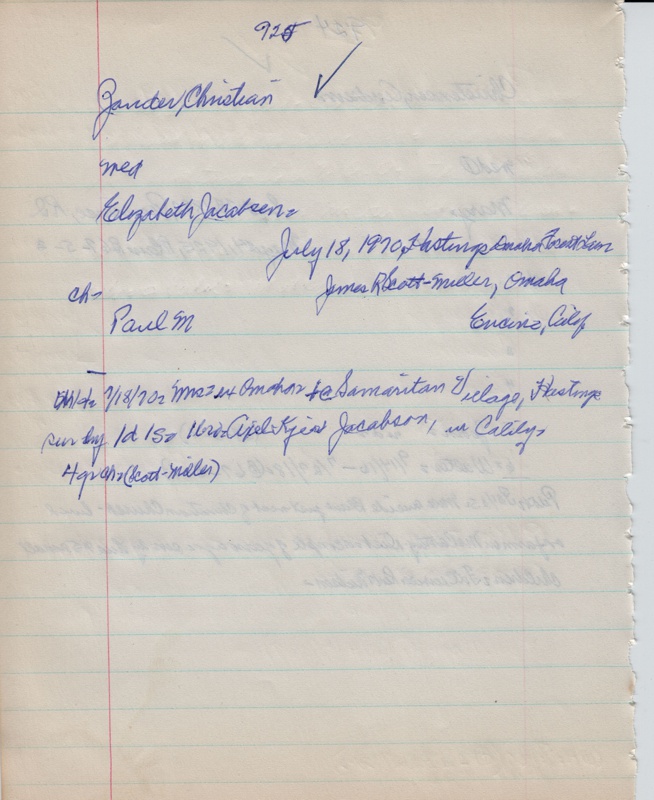 925
Zander, Christian
med
Elizabeth Jacobsen=
July 18, 1970, Hastings Omaha Forest Lawn
James R Scott-Miller, Omaha
ch=
Paul M Encino, Calif
7/18/70= Mrs= ex Omahan Samaritan Village, Hastings
sur by 1d 1s= bro= Axel Jacobson, in Calif=
4 grch= (Scott-Miller)